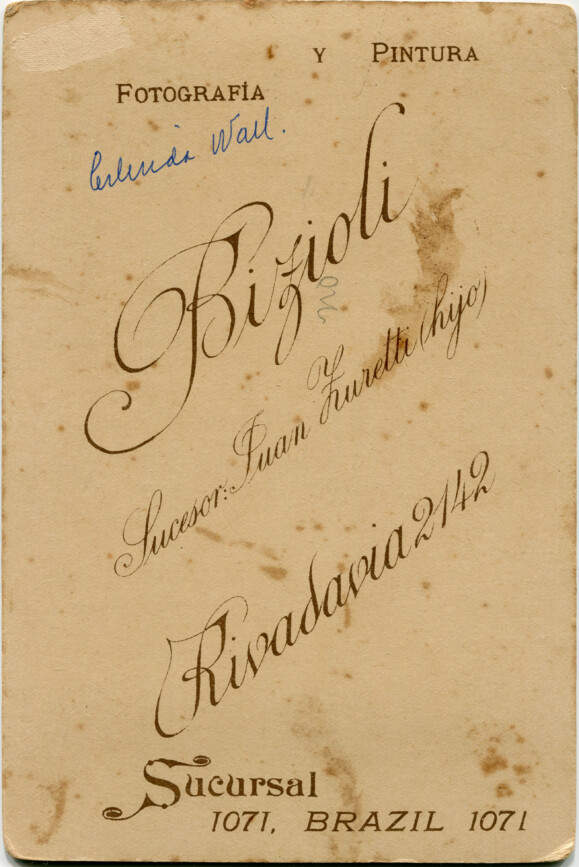 Y PINTURA
FOTOGRAFÍA
Wall.
Bizioli
Sucesor: Juan Zuretti (hijo)
Rivadavia 2142
Sucursal
1071, BRAZIL 1071